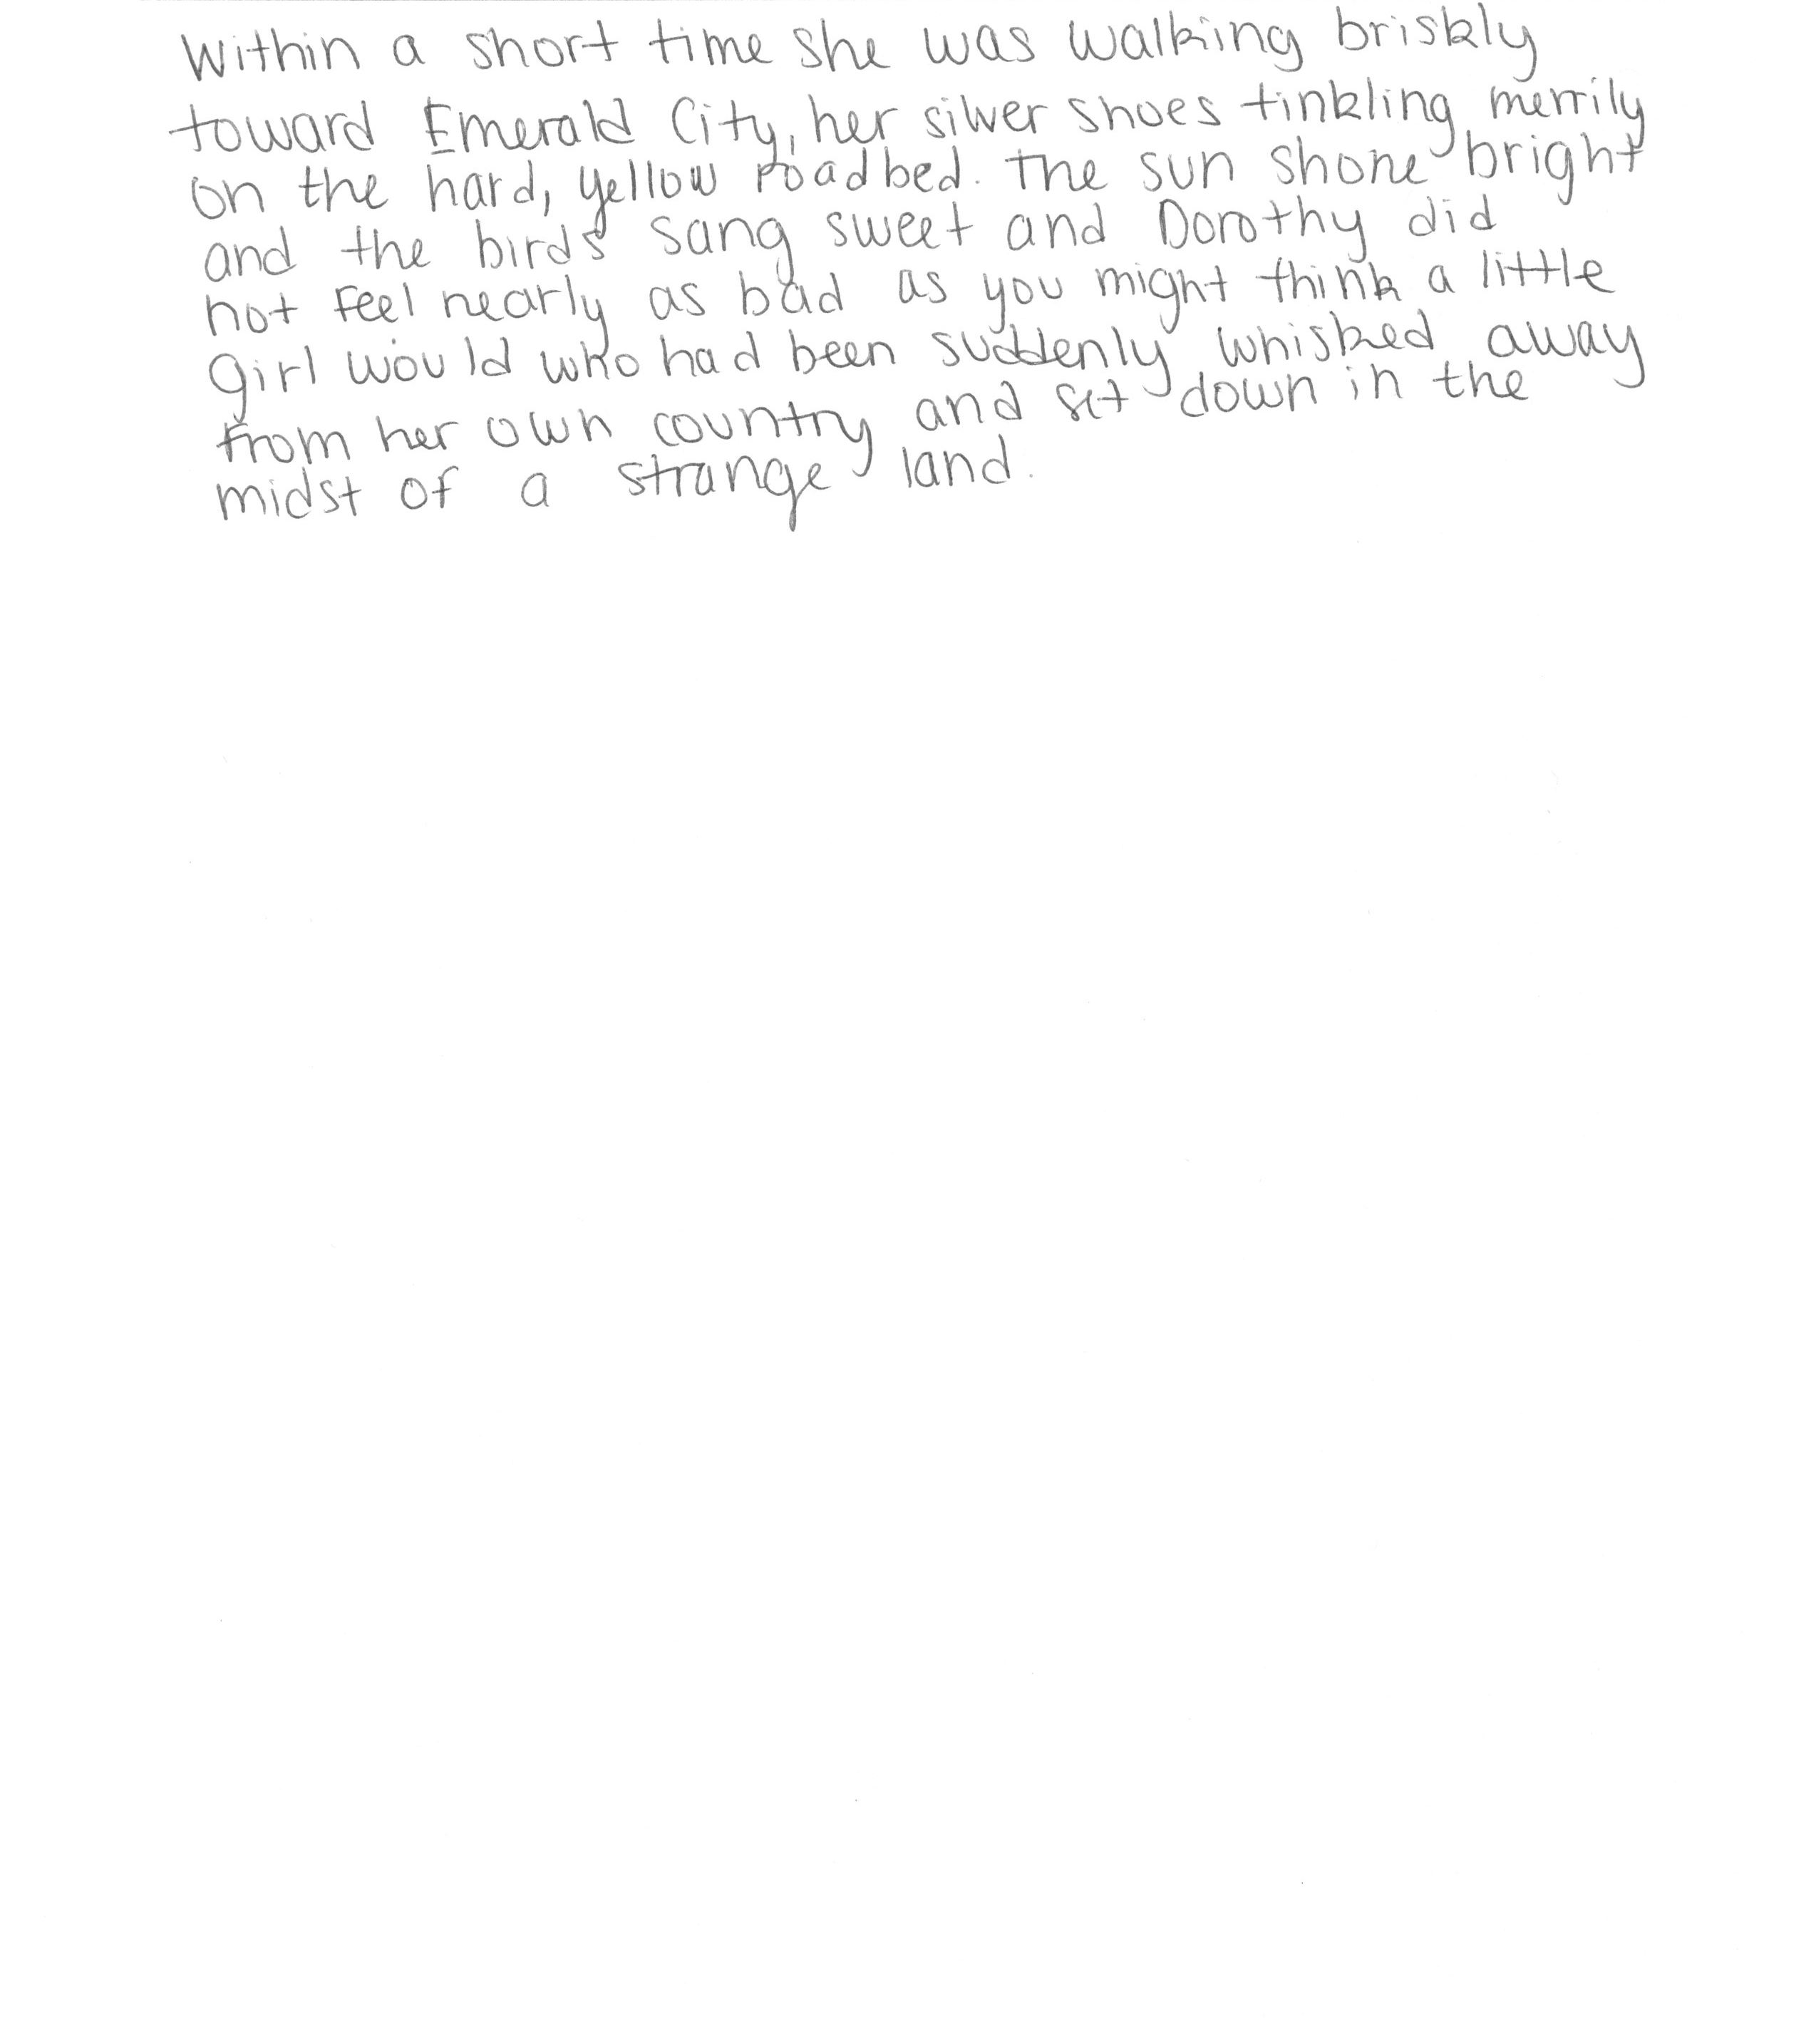 Within a short time she was walking briskly
toward Emerald City, her silver shoes tinkling merrily
on the hard, yellow roadbed. The sun shone bright
and the birds sang sweet and Dorothy did
not feel nearly as bad as you might think a little
girl would who had been suddenly whisked away
from her own country and set down in the
midst of a strange land.